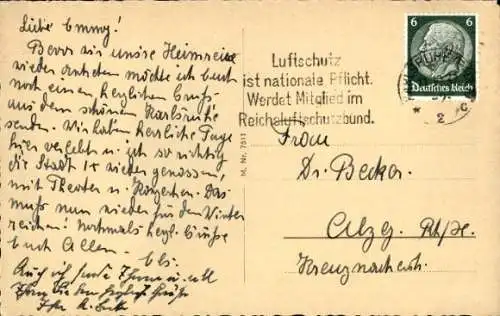 Liebe Emmy!
Bevor wir unsre Heimreise
wieder antreten möchte ich Euch
noch einen herzlichen Gruß
aus dem schönen Karlsruhe
senden. Wir haben herrliche Tage
hier verlebt u. ich so richtig
die Stadt wieder genossen,
mit Theater u. Konzerten. Das
muß nun wieder für den Winter
reichen! Nochmals herzl. Grüße
Euch Allen. Els.
Auch ich
6 6
Deutsches Reich
Luftschutz
ist nationale Pflicht.
Werdet Mitglied im
Reichsluftschutzbund.
2 c
M. Nr. 7511
Frau
Dr. Becker.
Alzey. Rhh.
Kreuznacherstr.